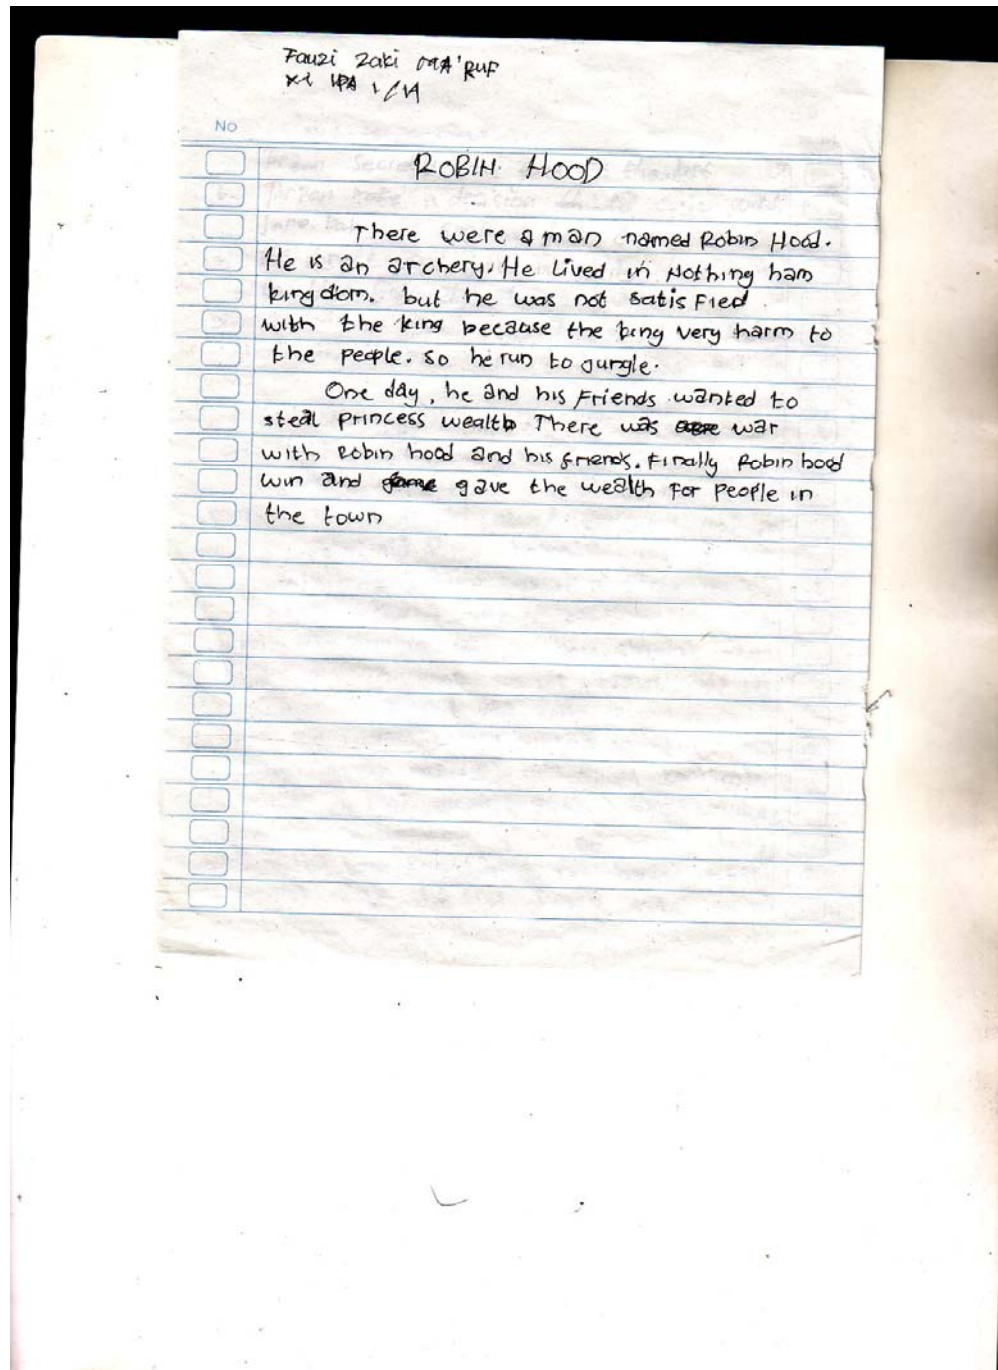 Fauzi Zaki MA'RUF
XI IPA 1 / 14
No
ROBIN HOOD
There were a man named Robin Hood.
He is an archery. He Lived in Nothing ham
kingdom. but he was not satis Fied
with the king because the king very harm to
the people. so he run to jungle.
One day, he and his Friends wanted to
steal princess wealth There was war
with Robin hood and his friends. Finally Robin hood
win and gave the wealth For People in
the town